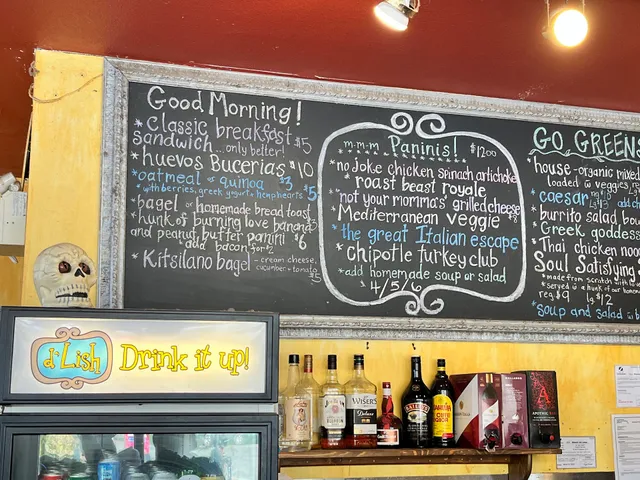 Good Morning!
* classic breakfast
sandwich...only better! $5
* huevos Bucerias $10
* oatmeal or quinoa $3
* with berries, greek yogurt & hemphearts $5
* bagel or homemade bread toast
* hunk of burning love banana
and peanut butter panini $6
* add bacon
* Kitsilano bagel - cream cheese,
cucumber & tomato
$5
m·m·m Paninis! $12.00
* no joke chicken spinach artichoke
* roast beast royale
* not your momma's grilled cheese
Mediterranean veggie
* the great Italian escape
* Chipotle turkey club
* add homemade soup or salad
$4/5/6
GO GREENS
* house-organic mixed
loaded w veggies
caesar
add
burrito salad,
Greek goddess
Thai chicken
Soul Satisfying
* made from scratch with
* served w a hunk of our
reg $9 lg $12
* soup and salad
d'Lish
Drink it up!
WISER'S
Deluxe
BAILEYS
KAHLÚA
APOTHIC